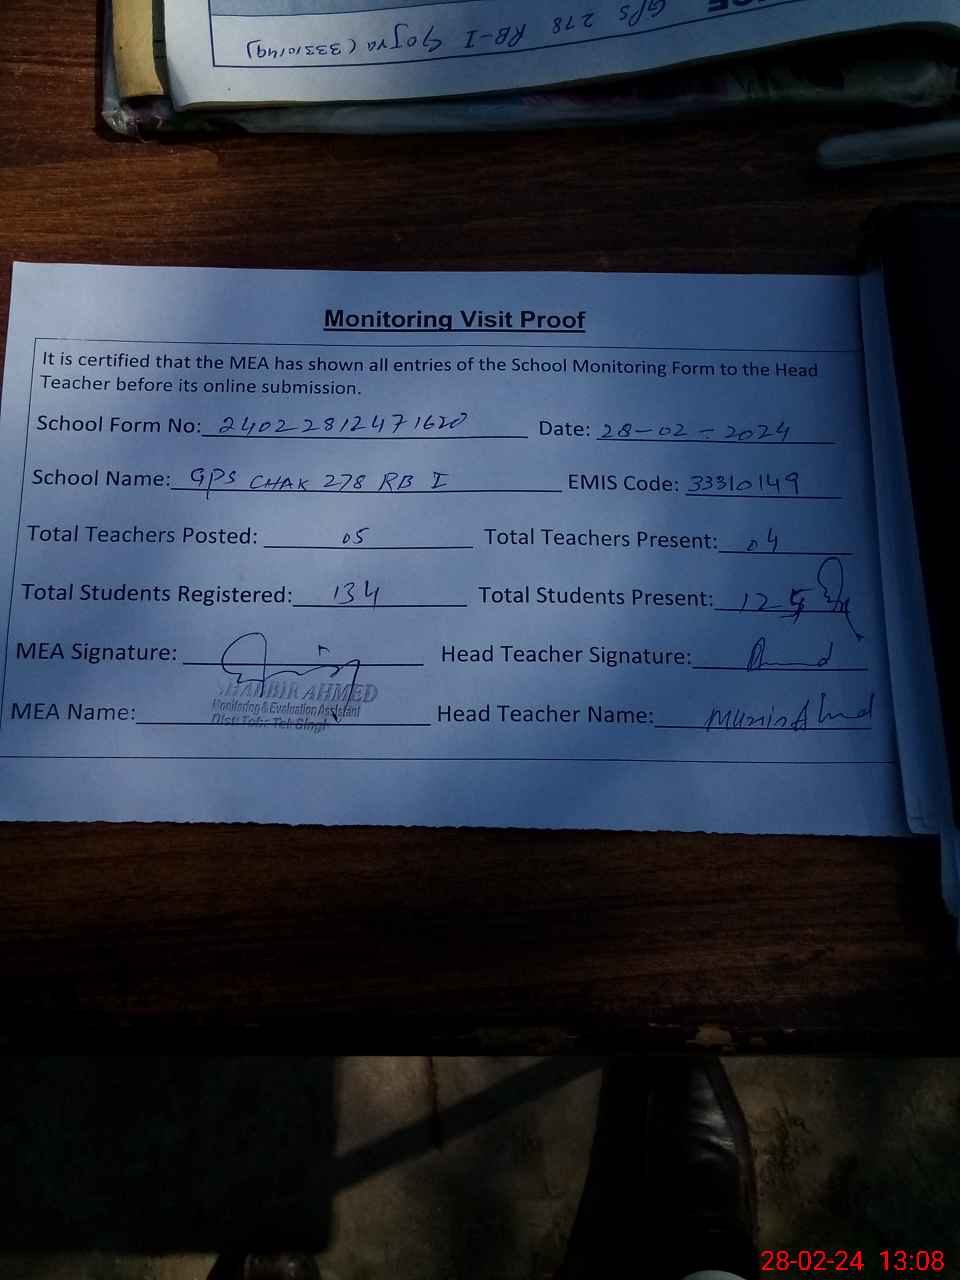 GPS 278 RB-I Gojra (33310149)
Monitoring Visit Proof
It is certified that the MEA has shown all entries of the School Monitoring Form to the Head
Teacher before its online submission.
School Form No: 240228124471620 Date: 28-02-2024
School Name: GPS CHAK 278 RB I EMIS Code: 33310149
Total Teachers Posted: 05 Total Teachers Present: 04
Total Students Registered: 134 Total Students Present: 125
MEA Signature: Head Teacher Signature:
SHABBIR AHMED
Monitoring & Evaluation Assistant
MEA Name: Head Teacher Name: Munir Ahmd
Distt Toba Tek Singh
28-02-24 13:08